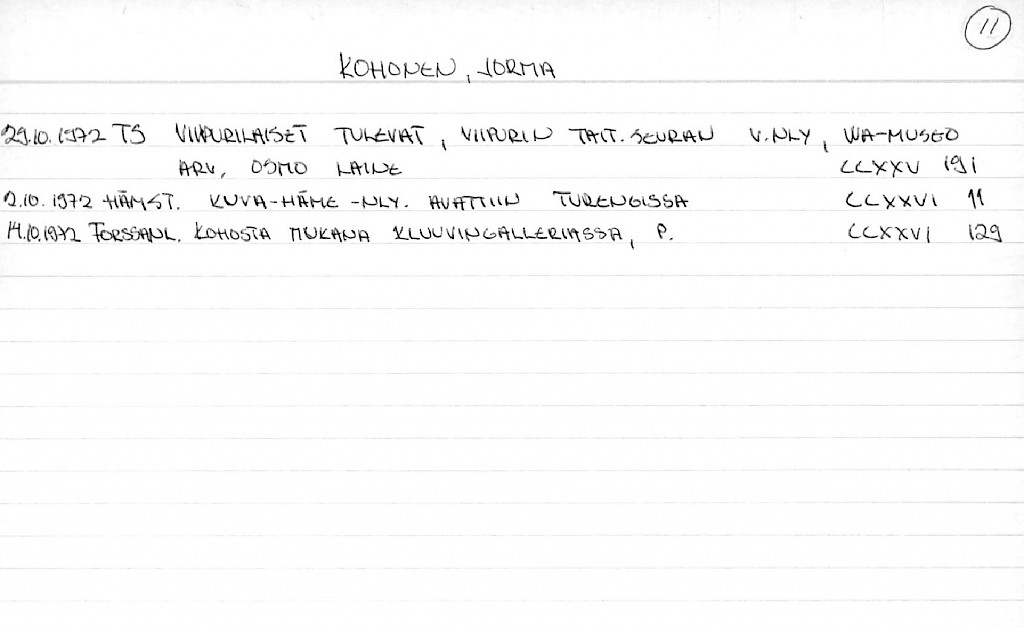 11
KOHONEN, JORMA
29.10.1972 TS VIIPURILAISET TULEVAT, VIIPURIN TAIT. SEURAN V.NLY, WA-MUSEO
ARV, OSMO LAINE CCXXV 191
2.10.1972 HÄMST. KUVA-HÄME-NLY. AVATTIIN TURENGISSA CCXXVI 11
14.10.1972 FORSSANL. KOHOSTA MUKANA KLUUVINGALLERIASSA, P. CCXXVI 129